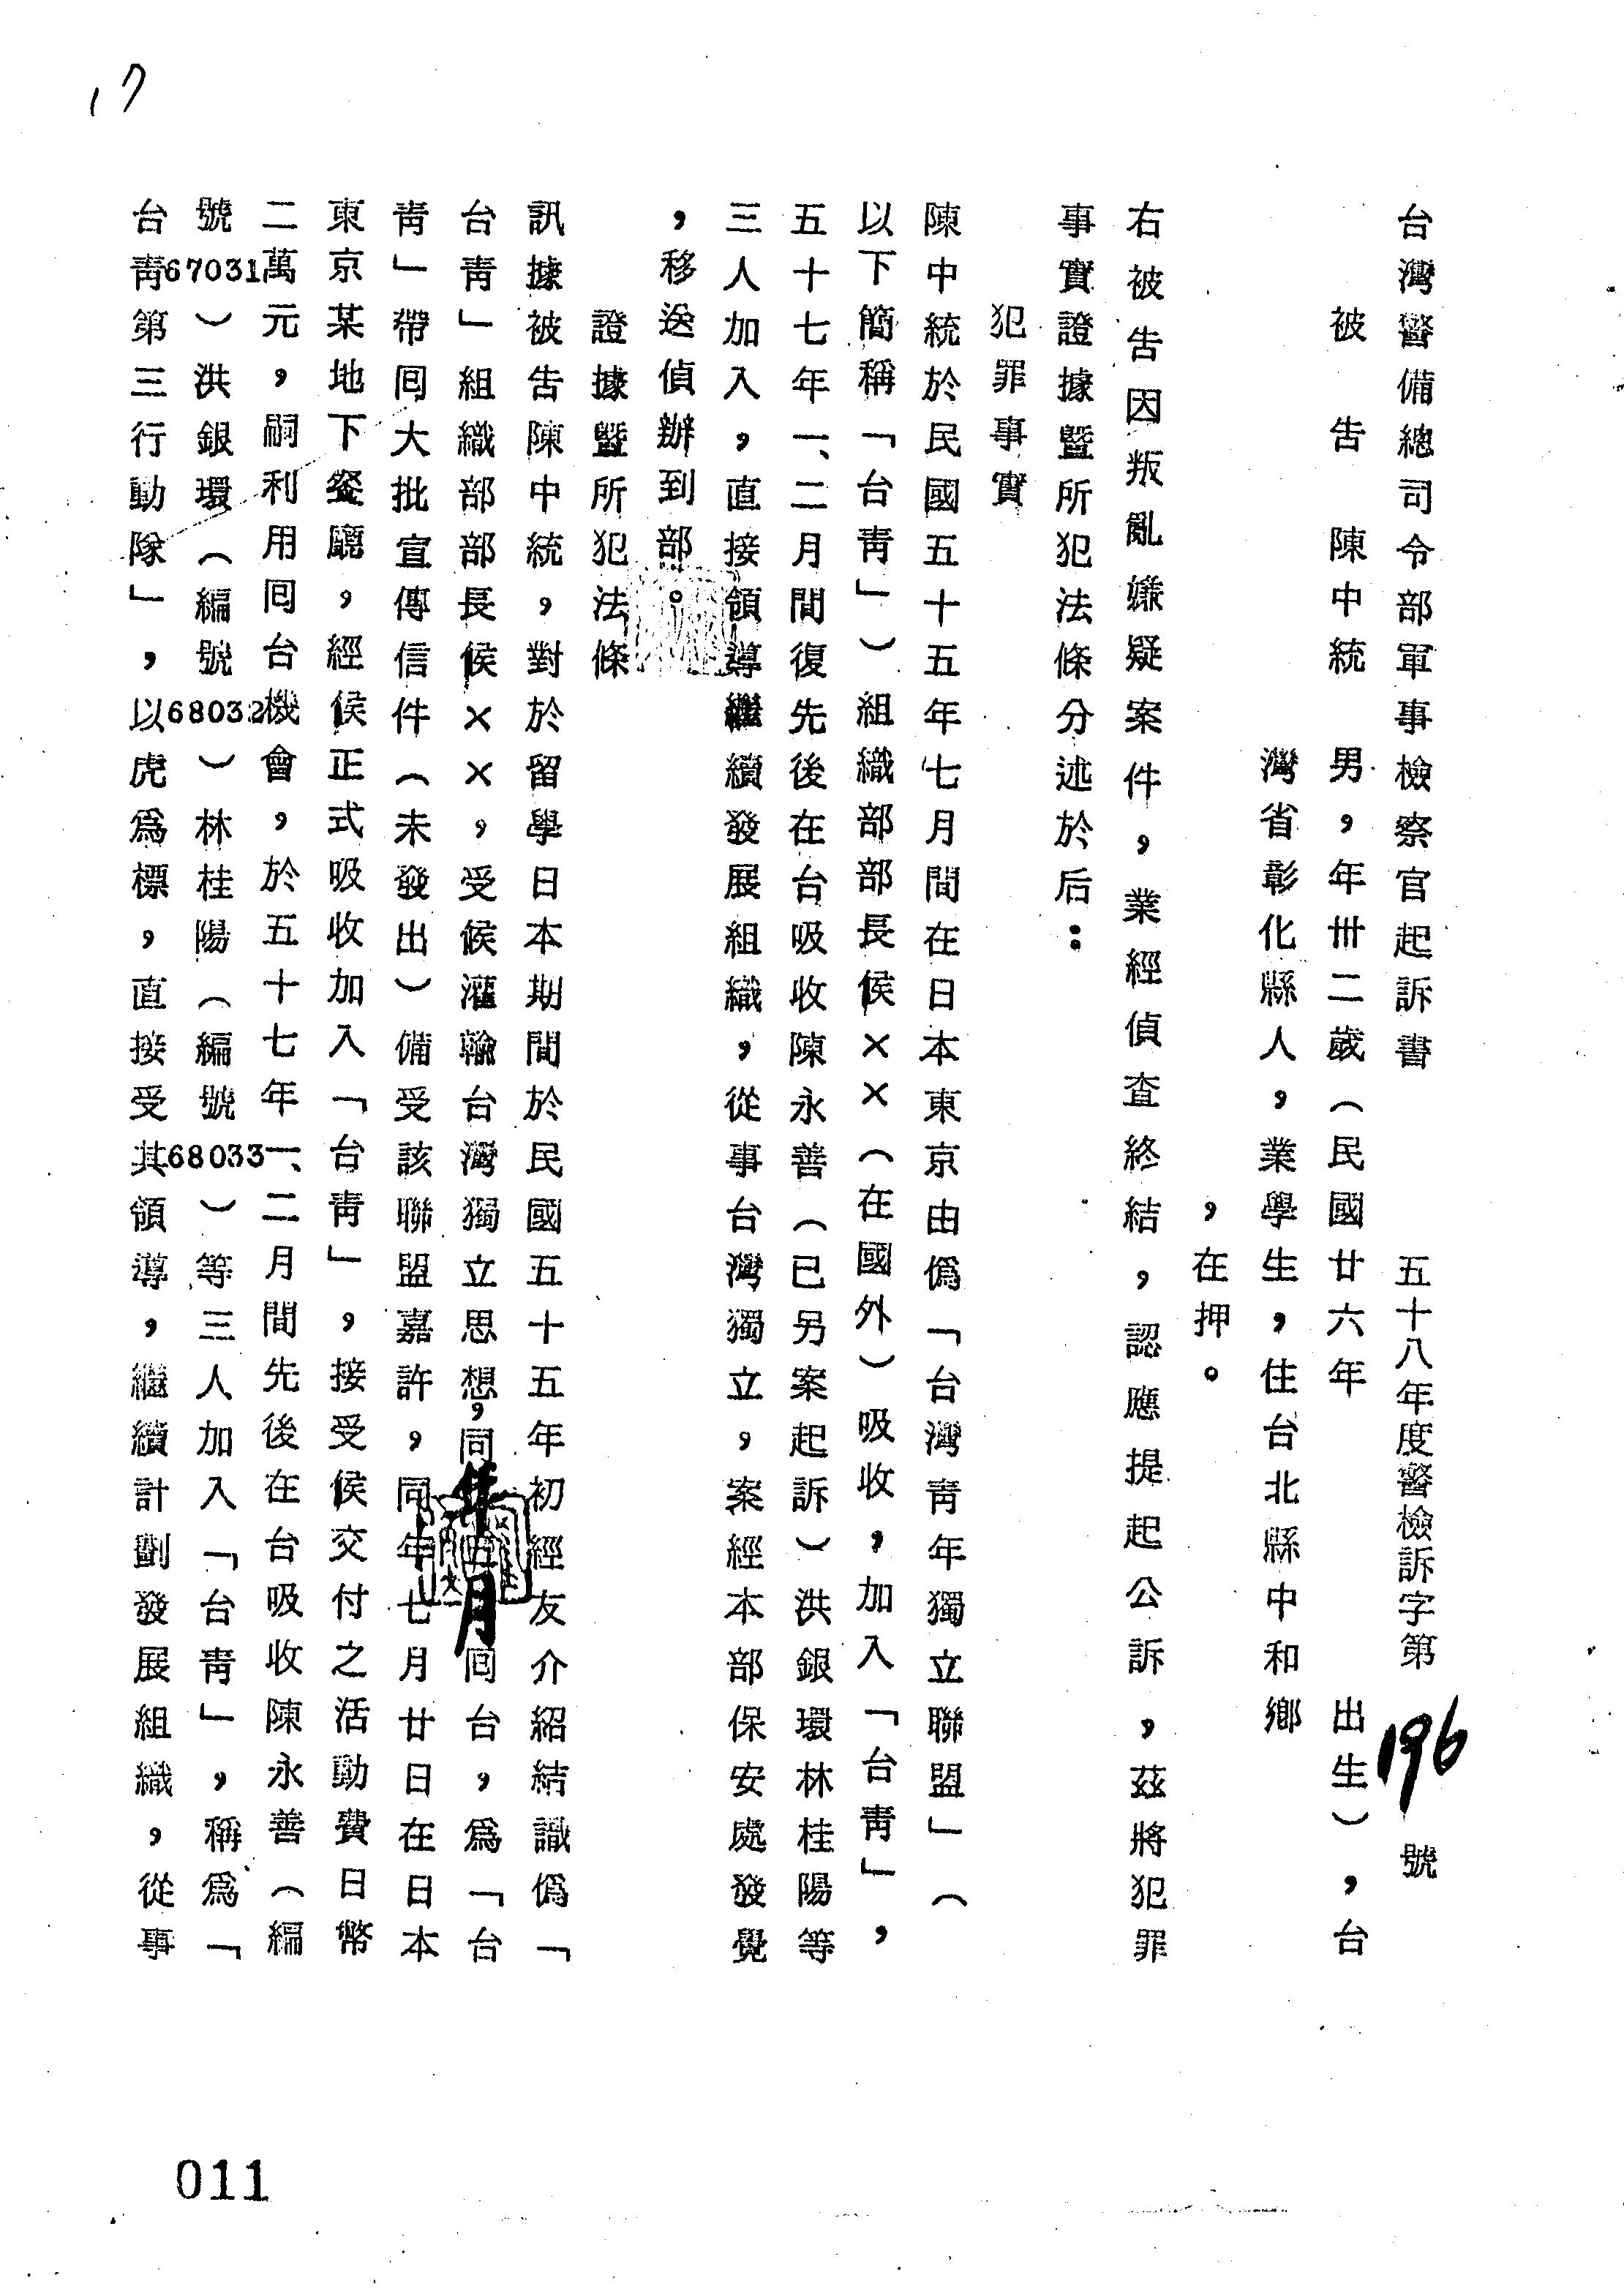 17
台灣警備總司令部軍事檢察官起訴書　五十八年度警檢訴字第196號
被告　陳中統　男，年卅二歲（民國廿六年　出生），台
灣省彰化縣人，業學生，住台北縣中和鄉
，在押。
右被告因叛亂嫌疑案件，業經偵查終結，認應提起公訴，茲將犯罪
事實證據暨所犯法條分述於后：
犯罪事實
陳中統於民國五十五年七月間在日本東京由偽「台灣青年獨立聯盟」（
以下簡稱「台青」）組織部部長侯××（在國外）吸收，加入「台青」，
五十七年一、二月間復先後在台吸收陳永善（已另案起訴）洪銀環林桂陽等
三人加入，直接領導繼續發展組織，從事台灣獨立，案經本部保安處發覺
，移送偵辦到部。
證據暨所犯法條
訊據被告陳中統，對於留學日本期間於民國五十五年初經友介紹結識偽「
台青」組織部部長侯××，受候灌輸台灣獨立思想，同年五月回台，為「台
青」帶回大批宣傳信件（未發出）備受該聯盟嘉許，同年七月廿日在日本
東京某地下餐廳，經侯正式吸收加入「台青」，接受侯交付之活動費日幣
二萬元，嗣利用回台機會，於五十七年一、二月間先後在台吸收陳永善（編
號67031）洪銀環（編號68032）林桂陽（編號68033）等三人加入「台青」，稱為「
台青第三行動隊」，以虎為標，直接受其領導，繼續計劃發展組織，從事
011